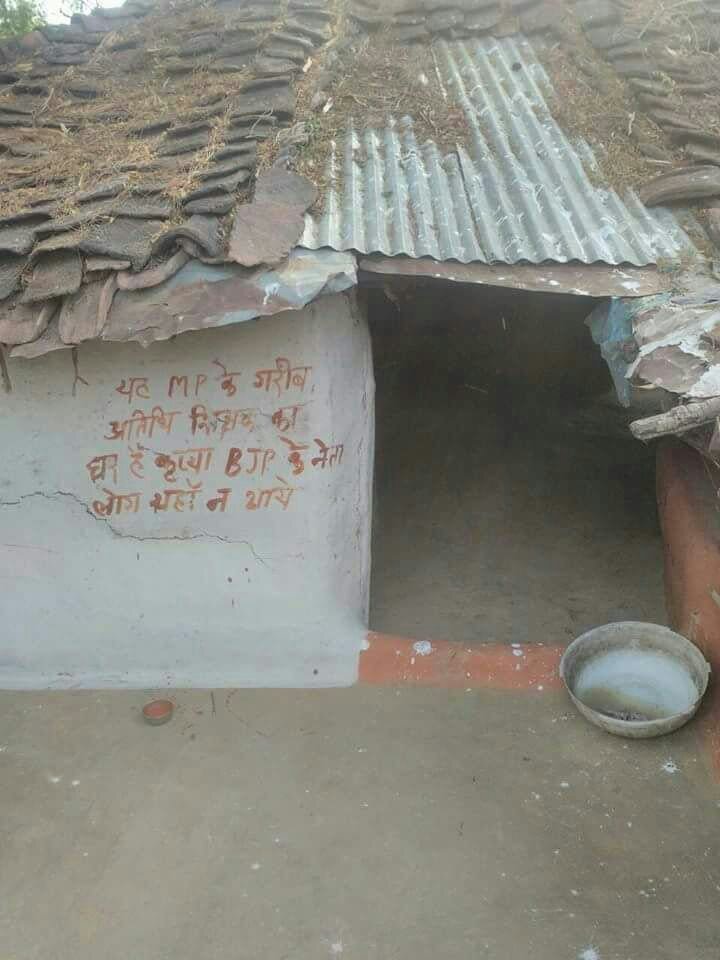 यह MP के गरीब
अतिथि शिक्षक का
घर है कृप्या BJP के नेता
लोग यहाँ न आये